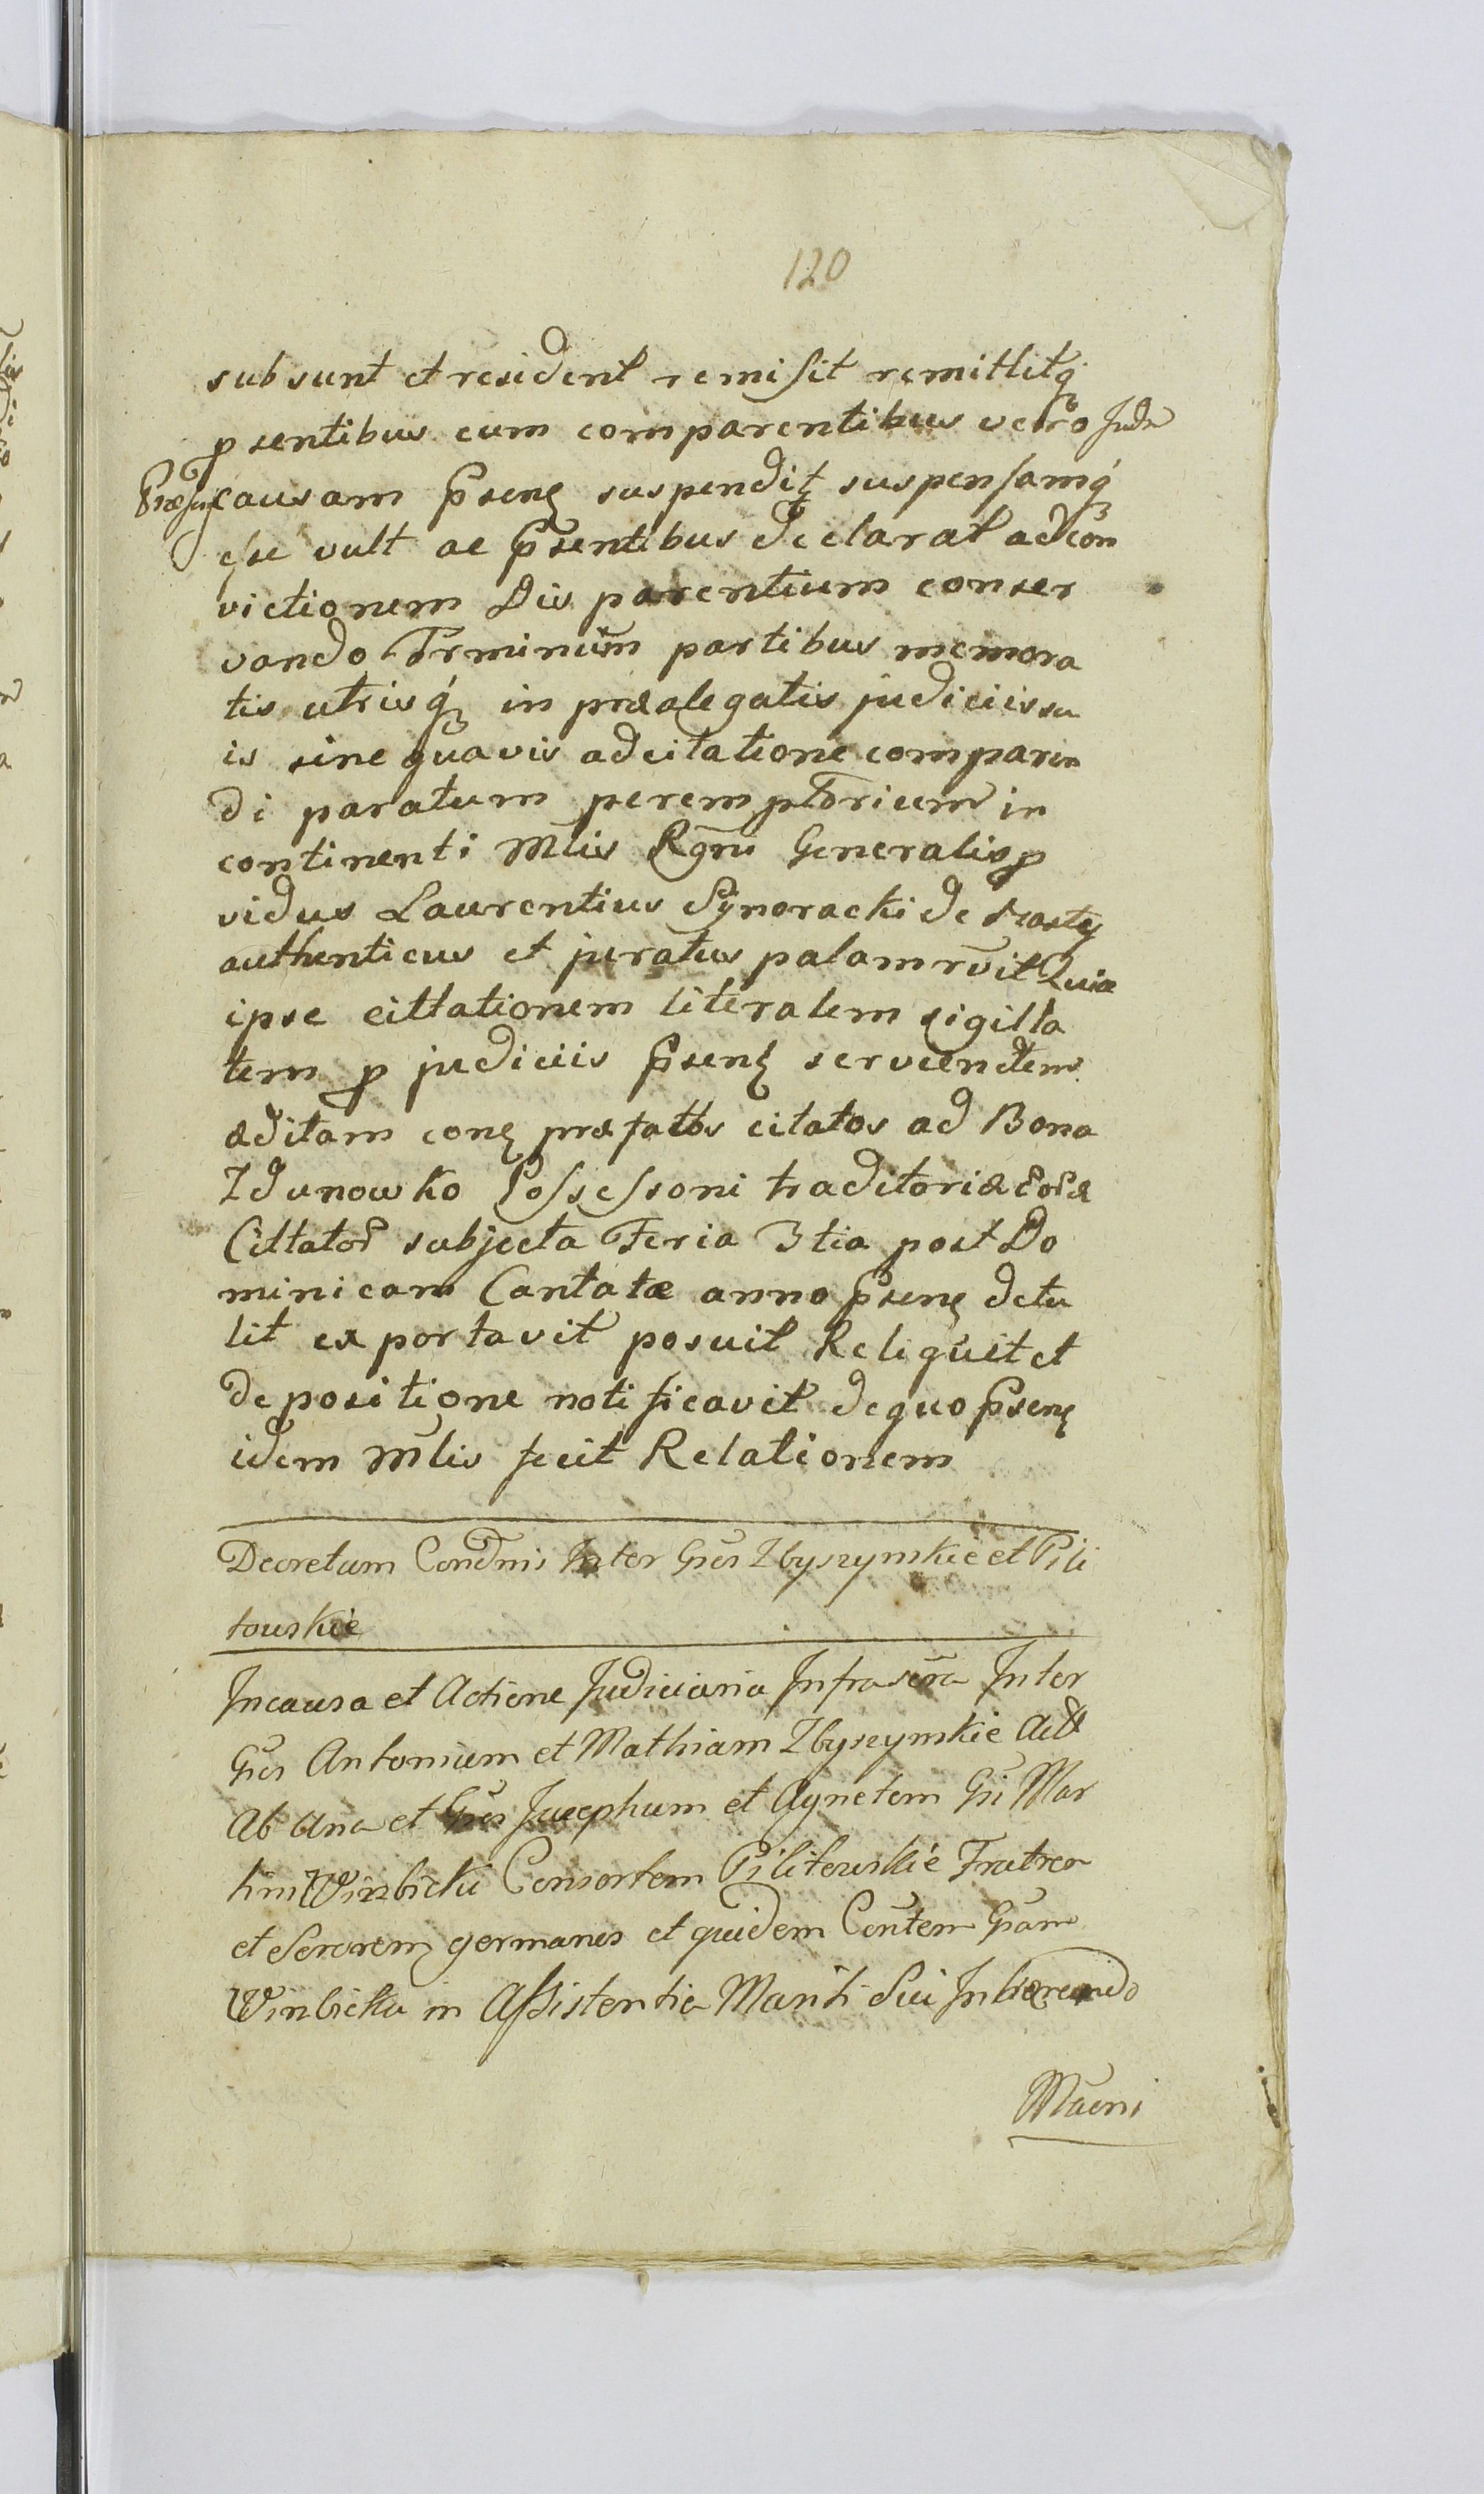 120
subsunt et resident remisit remittitq̃
p sentibus cum comparentibus vero Judm
Præsens causam p̃senꝫ suspendit suspensamq̃
esse vult ac p̃sentibus declarat ad con
victionem Dis parentium conser
vando Trminum̃ partibus memora
tis utrisq̃ in præalegatis judiciis su
is sine quavis adcitatione comparen
di paratum peremptorium in
continenti Mlis Rgni Generalis p
vidus Laurentius Synoracki de
authenticus et juratus palam rvit Quia
ipse cittationem literalem sigilla
tem p judiciis p̃senꝫ servientem
æditam conꝫ præfattos citatos ad Bona
Zdunowko Possessoni traditoriæ
Cittator subjecta Feria 3tia post Do
minicam Cantatæ anno p̃senꝫ detu
lit exportavit posuit Reliquit et
depositione notificavit de quo p̃senꝫ
idem Mlis fecit Relationem
Decretum Condnis Inter Gn̄os Zbyszynskie et Pili
towskie
In causa et Actione Judiciaria Infrascr̄a Inter
Gn̄os Antonium et Mathiam Zbyszynskie Act
Ab Una et Gn̄os Josephum et Agnetem Gn̄i Mar
tini Winbicki Consortem Pilitowskie Fratrem
et Sororem germanos et quidem Con̄tem Gn̄am
Winbicka in Assistentia Mariti Sui Inhærendo
Mũni